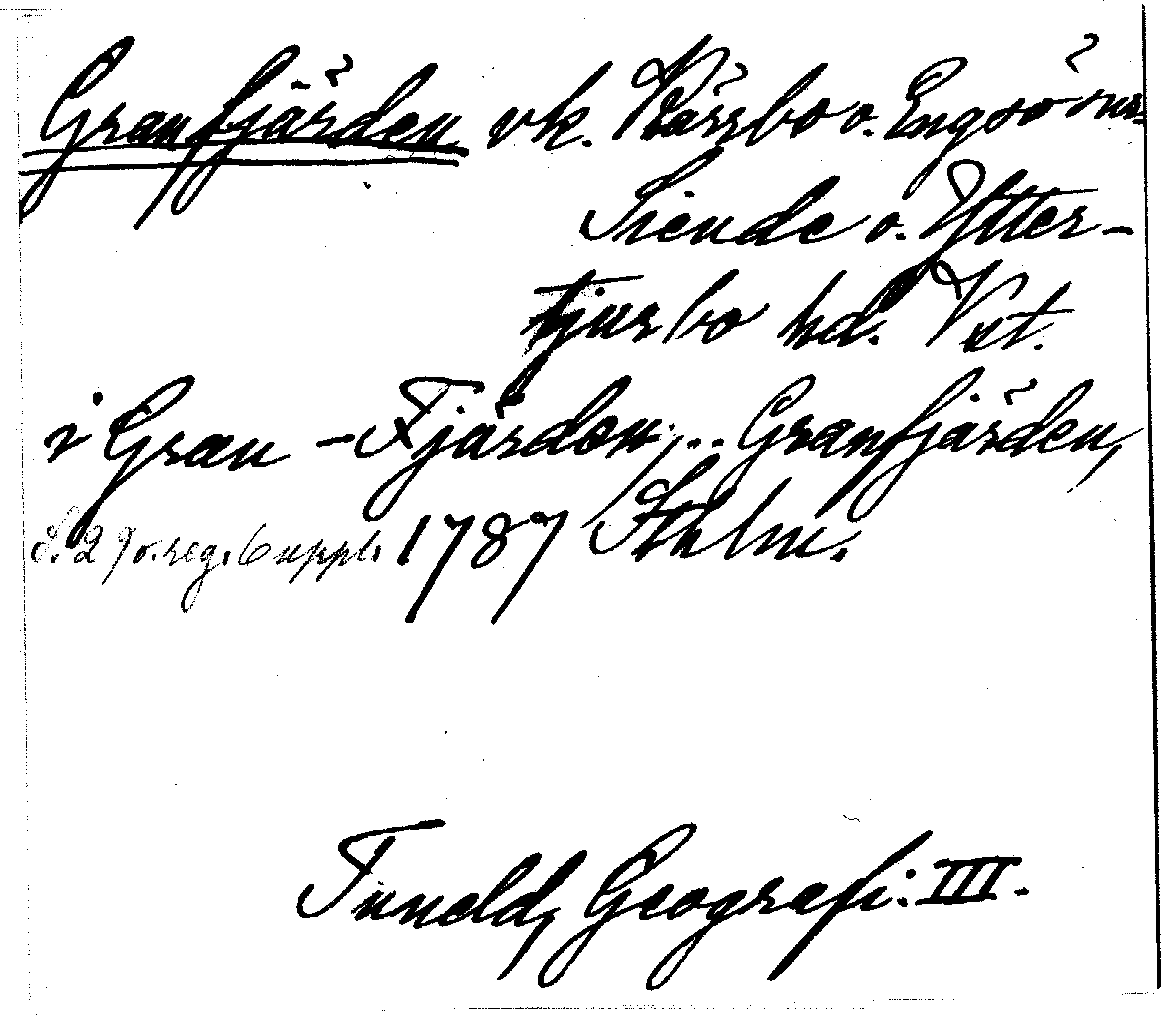 Granfjärden vk. Kärrbo o. Engsö snr.
Siende o. Ytter-
tjurbo hd. Vst.
i Gran-Fjärden, .. Granfjärden,
S. 29 o. reg. 6 uppl. 1787 Sthlm.
Tunelds Geografi. III.